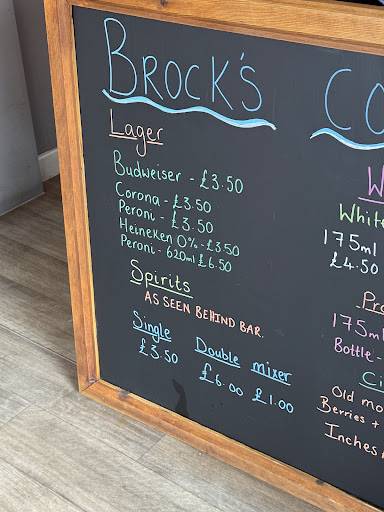 BROCK'S CO
Lager
Budweiser - £3.50
Corona - £3.50
Peroni - £3.50
Heineken 0% - £3.50
Peroni - 620ml £6.50
Spirits
AS SEEN BEHIND BAR.
Single Double mixer
£3.50 £6.00 £1.00
W
White
175ml
£4.50
Pro
175m
Bottle -
Ci
Old mo
Berries +
Inches